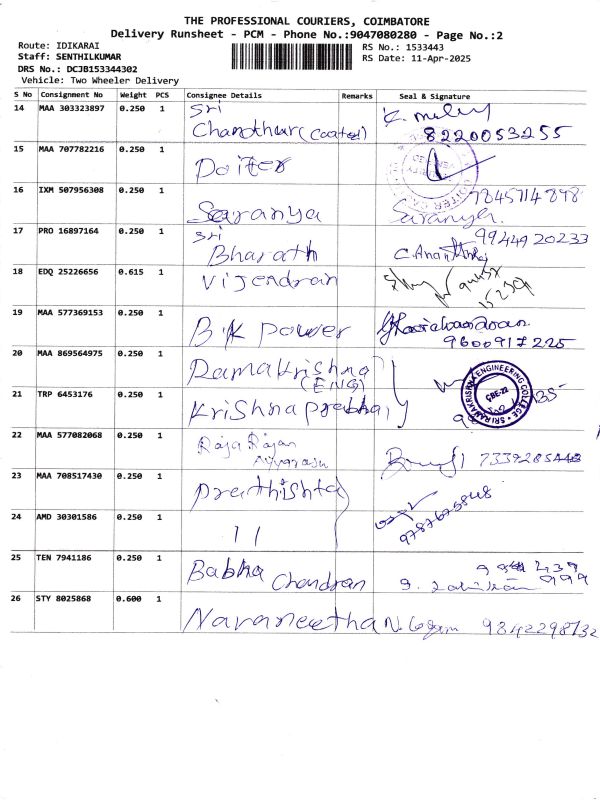 THE PROFESSIONAL COURIERS, COIMBATORE
Delivery Runsheet - PCM - Phone No.:9047080280 - Page No.:2
Route: IDIKARAI RS No.: 1533443
Staff: SENTHILKUMAR RS Date: 11-Apr-2025
DRS No.: DCJB153344302
Vehicle: Two Wheeler Delivery
S No Consignment No Weight PCS Consignee Details Remarks Seal & Signature
14 MAA 303323897 0.250 1 Sri
Chandhur (coated) 8220053255
15 MAA 707782216 0.250 1 Doiter
16 IXM 507956308 0.250 1 Saranya Saranya
17 PRO 16897164 0.250 1 Sri 9944920233
Bharath C. Ananthraj
18 EDQ 25226656 0.615 1 Vijendran
19 MAA 577369153 0.250 1 B.K power
9600917225
20 MAA 869564975 0.250 1 Ramakrishna
(ENG)
SRI RAMAKRISHNA ENGINEERING COLLEGE
CBE-22
21 TRP 6453176 0.250 1 Krishna prebha
22 MAA 577082068 0.250 1 Raja Rajan
23 MAA 708517430 0.250 1 Prathishta
24 AMD 30301586 0.250 1 11
25 TEN 7941186 0.250 1 Babha Chandran
26 STY 8025868 0.600 1 Navaneetha 9842298132